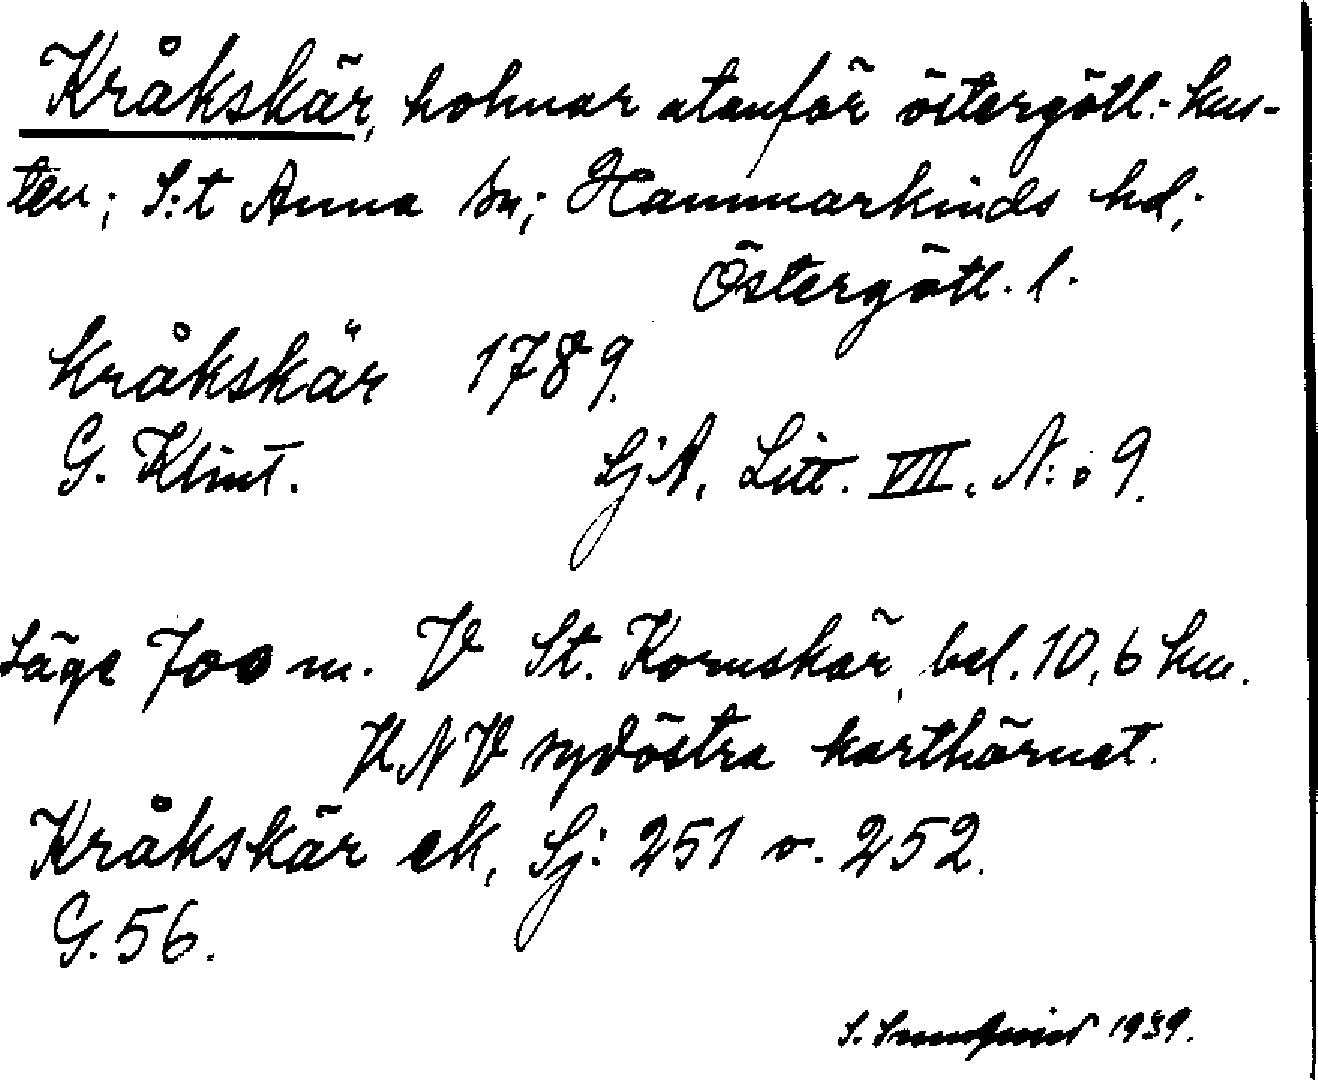 Kråkskär, holmar utanför östergötl.-kus-
ten; S:t Anna sn; Hammarkinds hd;
Östergötl. l.
Kråkskär 1789.
G. Klint. SjA, Litt. VII. N:o 9.
Läge 700 m. V St. Kornskär, bel. 10,6 km.
VNV sydöstra karthörnet.
Kråkskär ek, Sj: 251 o. 252.
G. 56.
S. Sundqvist 1939.